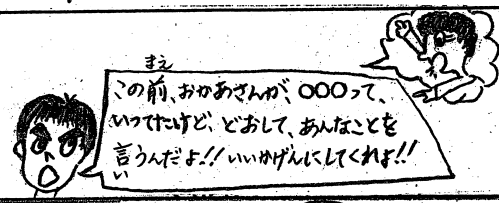 まえ
この前、おかあさんが、○○○って、
いってたけど、どおして、あんなことを
言うんだよ!! いいかげんにしてくれよ!!
い